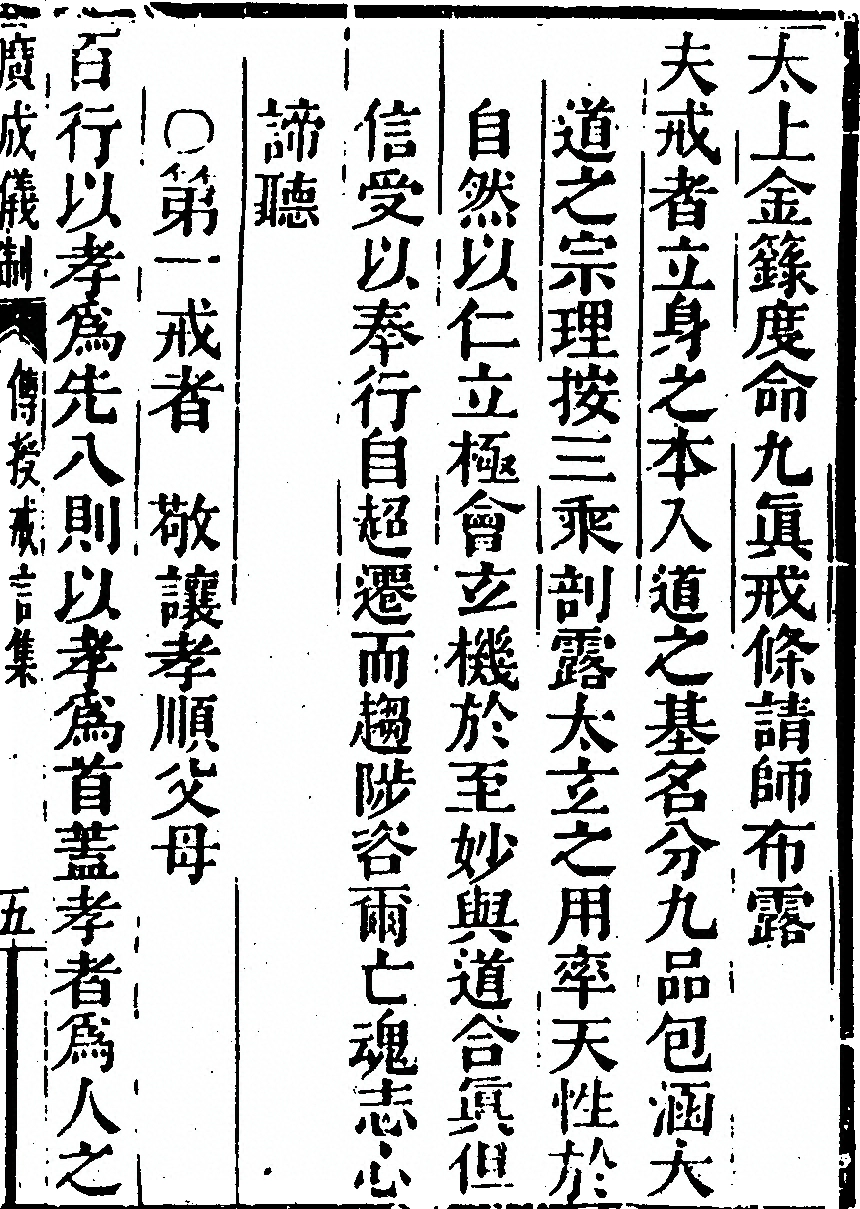 太上金籙度命九眞戒條請師布露
夫戒者立身之本入道之基名分九品包涵大
道之宗理按三乘剖露太玄之用率天性於
自然以仁立極會玄機於至妙與道合眞但
信受以奉行自超遷而趨陟咨爾亡魂志心
諦聽
〇第一戒者　敬讓孝順父母
百行以孝爲先八則以孝爲首蓋孝者爲人之
廣成儀制　傳授戒言集　五